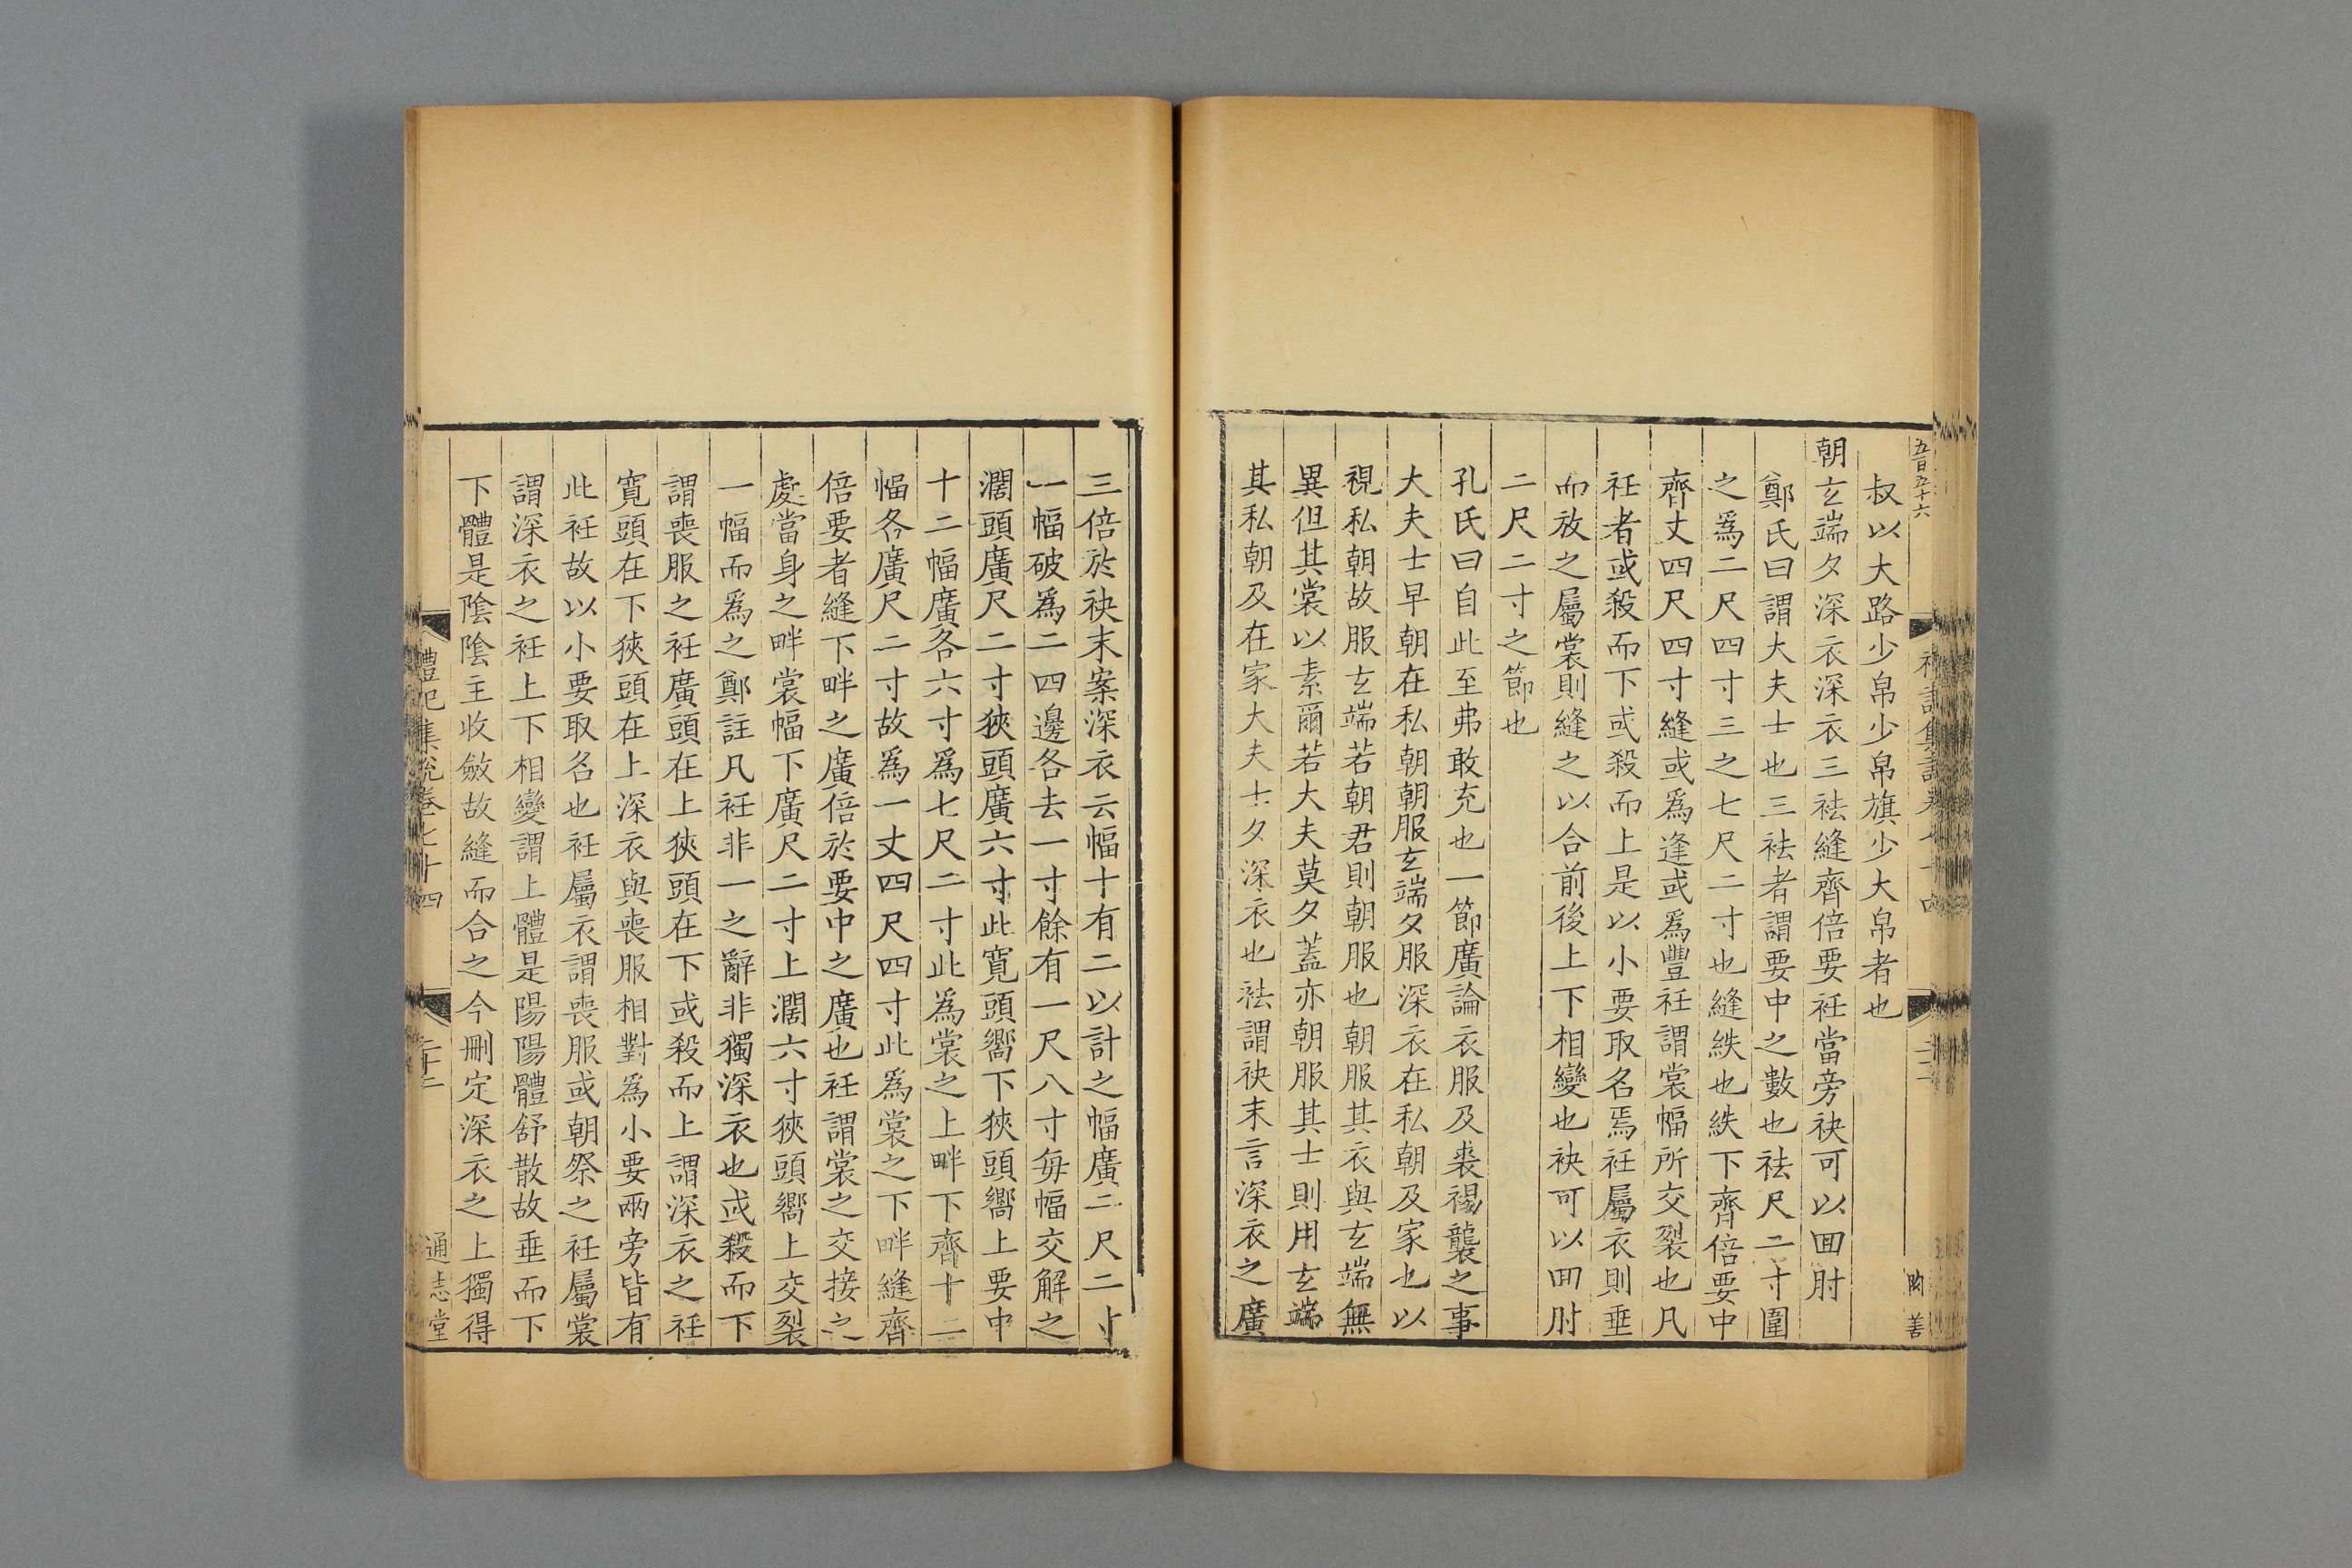 五百五十六
叔以大路少帛少帛旗少大帛者也
朝玄端夕深衣深衣三袪縫齊倍要衽當旁袂可以回肘
鄭氏曰謂大夫士也三袪者謂要中之數也袪尺二寸圍
之爲二尺四寸三之七尺二寸也縫紩也紩下齊倍要中
齊丈四尺四寸縫或爲逢或爲豐衽謂裳幅所交裂也凡
衽者或殺而下或殺而上是以小要取名焉衽屬衣則垂
而放之屬裳則縫之以合前後上下相變也袂可以回肘
二尺二寸之節也
孔氏曰自此至弗敢充也一節廣論衣服及裘裼襲之事
大夫士早朝在私朝朝服玄端夕服深衣在私朝及家也以
視私朝故服玄端若朝君則朝服也朝服其衣與玄端無
異但其裳以素爾若大夫莫夕蓋亦朝服其士則用玄端
其私朝及在家大夫士夕深衣也袪謂袂末言深衣之廣
三倍於袂末案深衣云幅十有二以計之幅廣二尺二寸
一幅破爲二四邊各去一寸餘有一尺八寸每幅交解之
濶頭廣尺二寸狹頭廣六寸此寛頭嚮下狹頭嚮上要中
十二幅廣各六寸爲七尺二寸此爲裳之上畔下齊十二
幅各廣尺二寸故爲一丈四尺四寸此爲裳之下畔縫齊
倍要者縫下畔之廣倍於要中之廣也衽謂裳之交接之
處當身之畔裳幅下廣尺二寸上濶六寸狹頭嚮上交裂
一幅而爲之鄭註凡衽非一之辭非獨深衣也或殺而下
謂喪服之衽廣頭在上狹頭在下或殺而上謂深衣之衽
寛頭在下狹頭在上深衣與喪服相對爲小要兩旁皆有
此衽故以小要取名也衽屬衣謂喪服或朝祭之衽屬裳
謂深衣之衽上下相變謂上體是陽陽體舒散故垂而下
下體是陰陰主收斂故縫而合之今刪定深衣之上獨得
禮記集說卷七十四
二十二
通志堂